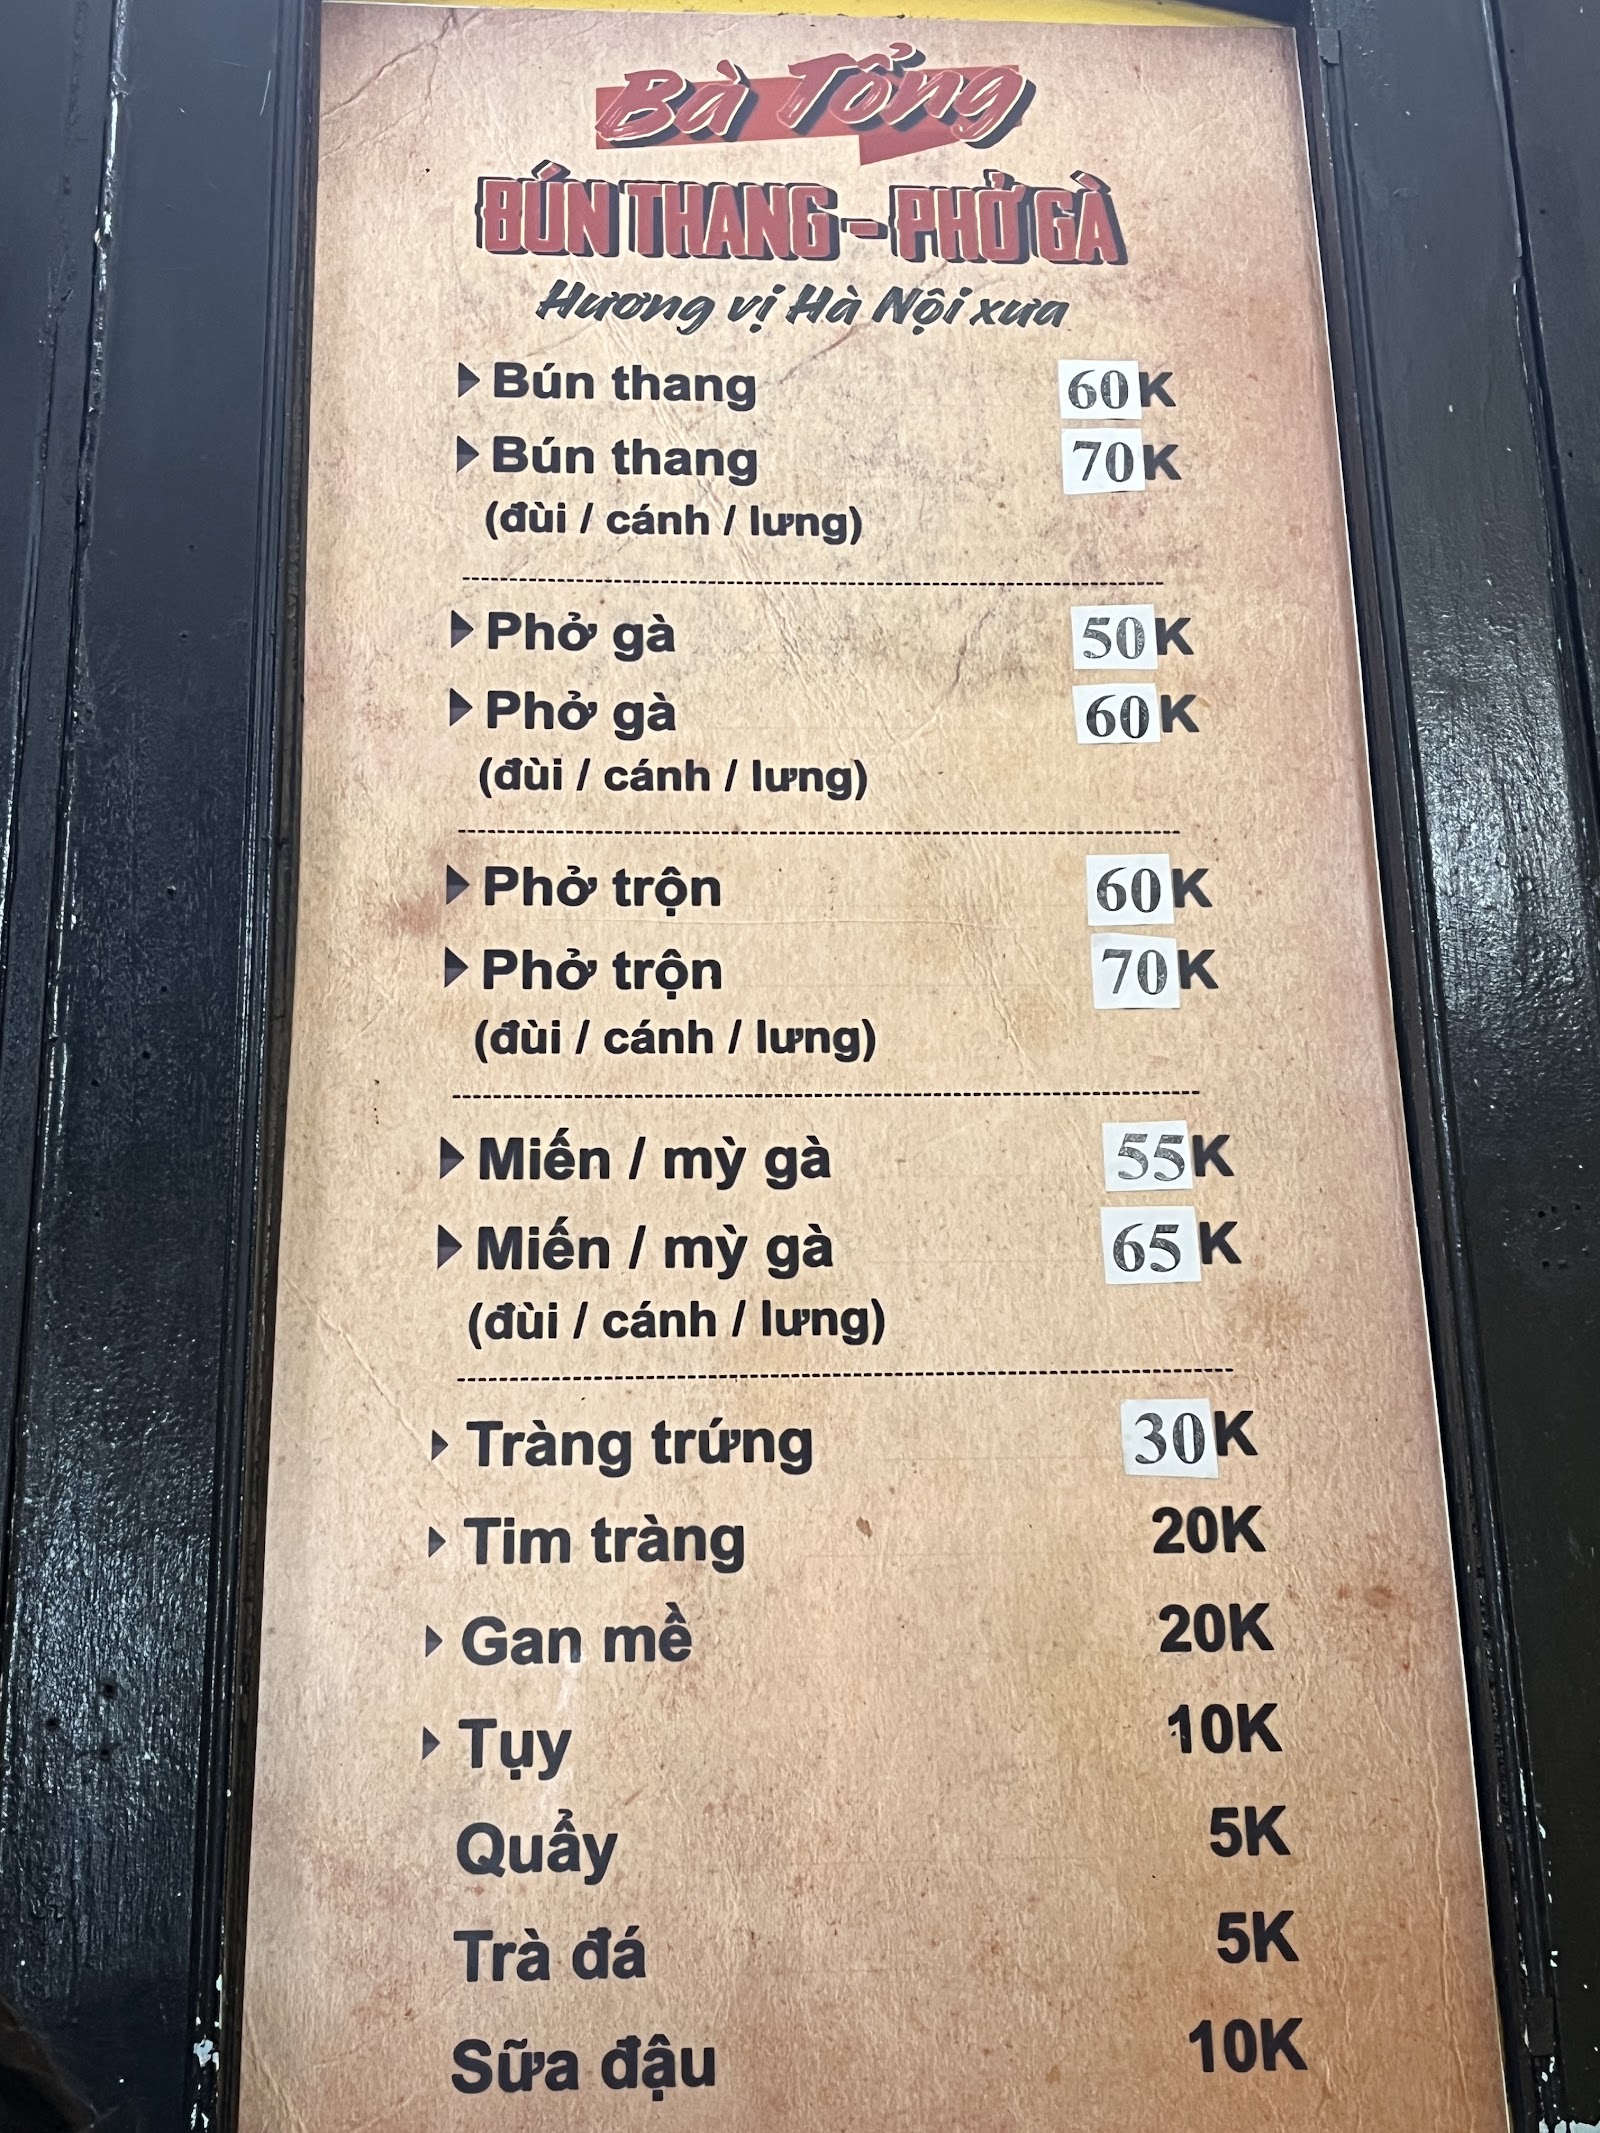 Bà Tổng
BÚN THANG - PHỞ GÀ
Hương vị Hà Nội xưa
Bún thang 60K
Bún thang 70K
(đùi / cánh / lưng)
Phở gà 50K
Phở gà 60K
(đùi / cánh / lưng)
Phở trộn 60K
Phở trộn 70K
(đùi / cánh / lưng)
Miến / mỳ gà 55K
Miến / mỳ gà 65K
(đùi / cánh / lưng)
Tràng trứng 30K
Tim tràng 20K
Gan mề 20K
Tụy 10K
Quẩy 5K
Trà đá 5K
Sữa đậu 10K